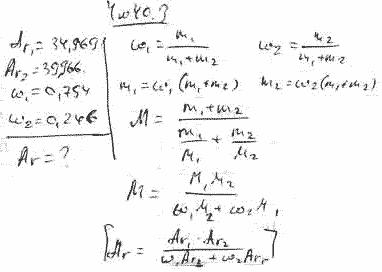 Ar₁ = 34,969
Ar₂ = 39966
ω₁ = 0,754
ω₂ = 0,246
Ar = ?
ω₁ = m₁/(m₁+m₂)    ω₂ = m₂/(m₁+m₂)
m₁ = ω₁(m₁+m₂)    m₂ = ω₂(m₁+m₂)
M = (m₁+m₂)/(m₁/M₁ + m₂/M₂)
M = M₁M₂/(ω₁M₂ + ω₂M₁)
[Ar = Ar₁·Ar₂/(ω₁Ar₂ + ω₂Ar₁)]